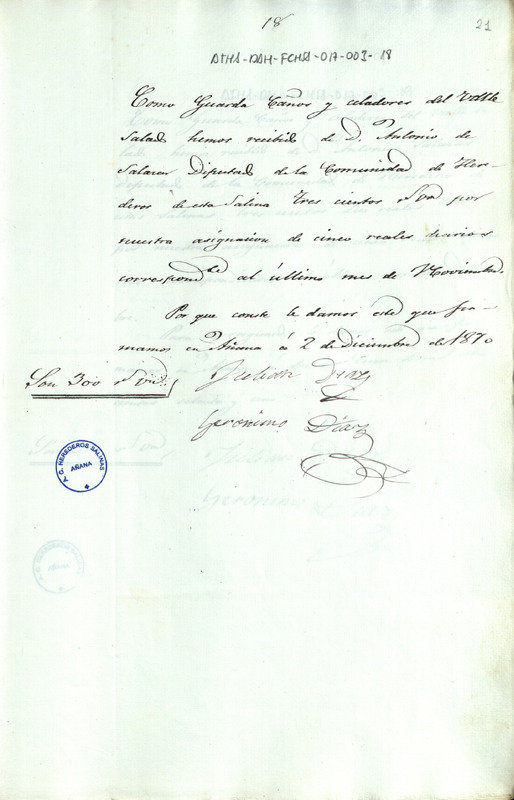 18
21
ATHA-DAH-FCHSA-017-003-18
Como Guarda Caños y celadores del Valle
Salado hemos recibido de D. Antonio de
Salazar Diputado de la Comunidad de Here-
deros de esta Salina tres cientos rvon por
nuestra asignacion de cinco reales diarios
correspondte al último mes de Noviembre.
Por que conste le damos este que fir-
mamos en Añana á 2 de Diciembre de 1870
Son 300 rvn
Julian Diaz
Geronimo Díaz
C. HEREDEROS SALINAS
AÑANA